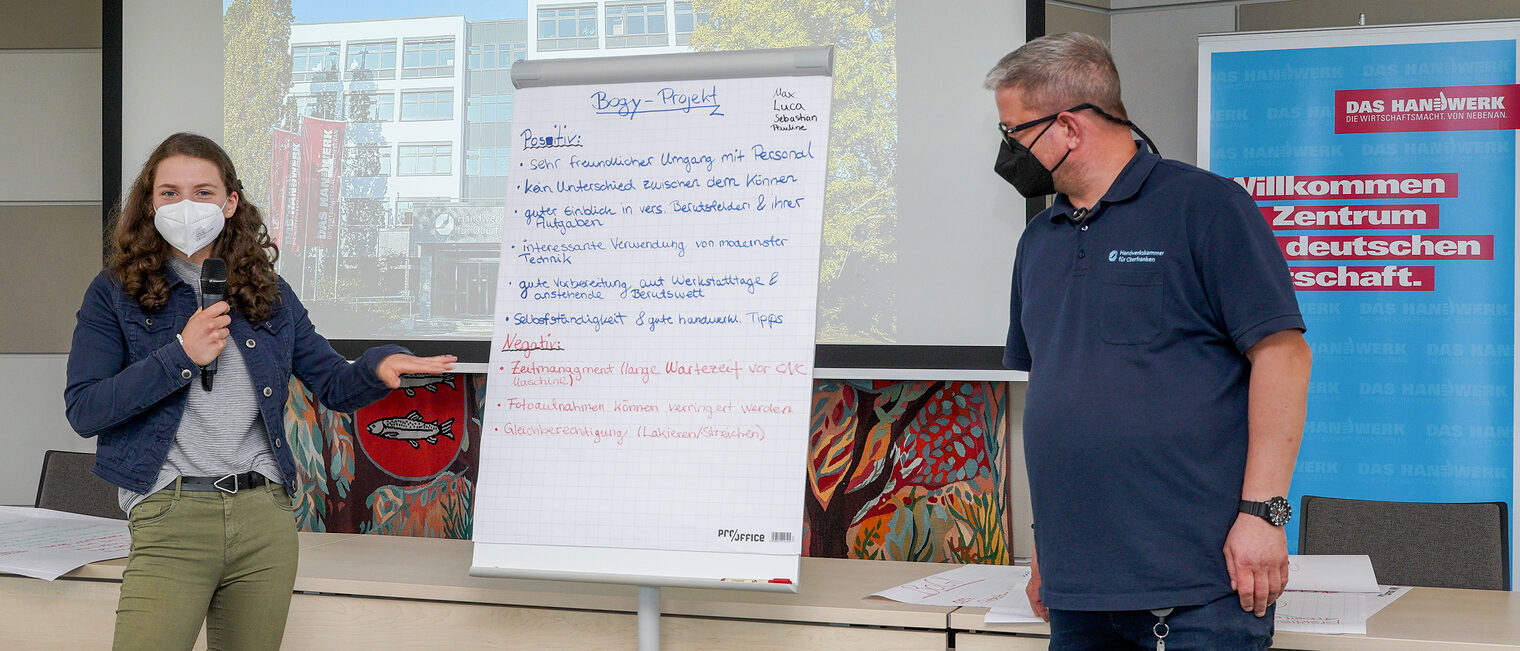 Bogy-Projekt
Max
Luca
Sebastian
Pauline
Positiv:
• sehr freundlicher Umgang mit Personal
• kein Unterschied zwischen dem Können
• guter Einblick in vers. Berufsfelder & ihrer
Aufgaben
• interessante Verwendung von modernster
Technik
• gute Vorbereitung auf Werkstatttage &
anstehende Berufswelt
• Selbstständigkeit & gute handwerkl. Tipps
Negativ:
• Zeitmanagment (lange Wartezeit vor CNC
Maschine)
• Fotoaufnahmen können verringert werden
• Gleichberechtigung (Lakieren/Streichen)
PRO/OFFICE
DAS HANDWERK
DAS HANDWERK
Handwerk
für Oberf
Handwerkskammer
für Oberfranken
DAS HANDWERK
DIE WIRTSCHAFTSMACHT. VON NEBENAN.
Willkommen
Zentrum
deutschen
tschaft.
DAS HANDWERK